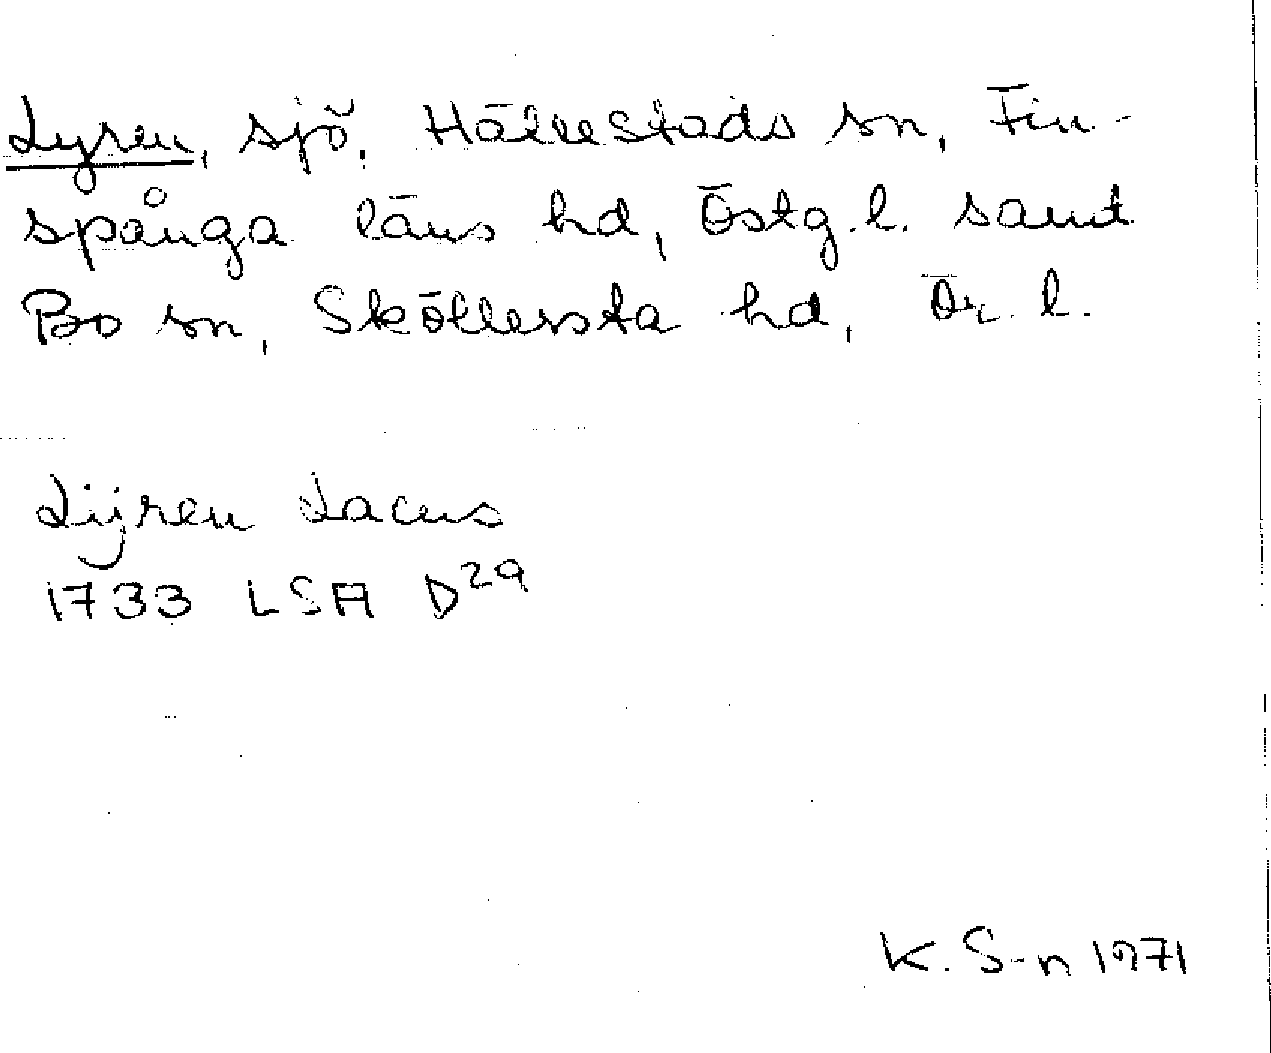 Lyren, sjö, Hällestads sn, Fin-
spånga läns hd, Östg.l. samt
Bo sn, Sköllersta hd, Ör. l.
Lijren Lacus
1733 LSA D29
K. S-n 1971